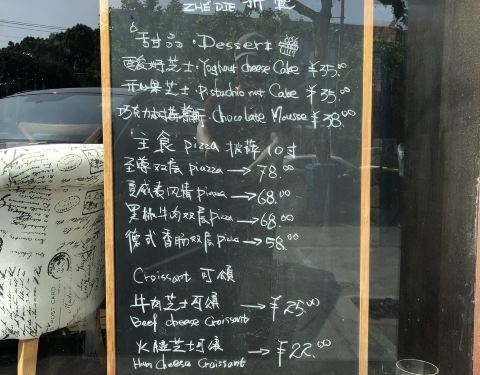 ZHE DIE 折叠
甜品·Dessert
酸奶芝士·Yoghout cheese Cake ¥35.00
开心果芝士·Pistachio nut Cake ¥35.00
巧克力慕斯·Chocolate Mousse ¥38.00
主食 pizza 披萨 10寸
至尊双层 piazza → 78.00
夏威夷风情 piazza → 68.00
黑椒牛肉双层 pizza → 68.00
德式香肠双层 pizza → 58.00
Croissant 可颂
牛肉芝士可颂 → ¥25.00
Beef cheese Croissant
火腿芝士可颂 → ¥22.00
Ham Cheese Croissant
POST CARD